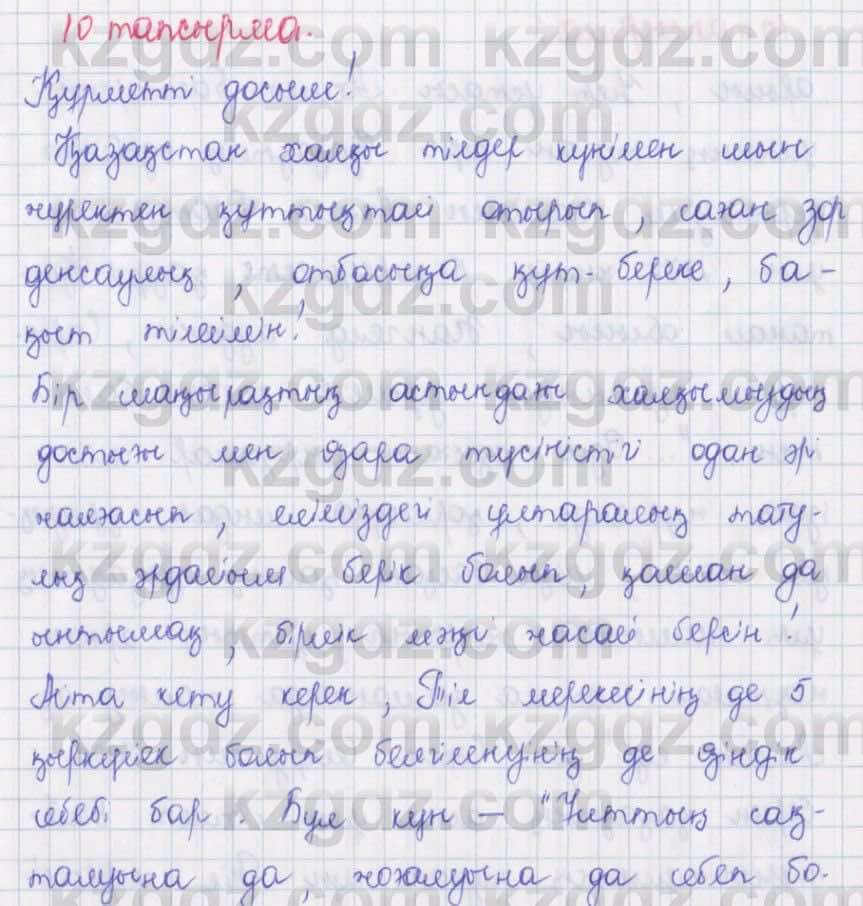 10 тапсырма.
Құрметті досым!
Қазақстан халқы тілдер күнімен шын
жүректен құттықтай отырып, саған зор
денсаулық, отбасыңа құт-береке, ба-
қыт тілеймін!
Бір шаңырақтың астындағы халқымыздың
достығы мен өзара түсіністігі одан әрі
жалғасып, еліміздегі ұлтаралық тату-
лық әрдайым берік болып, қашан да
ынтымақ, бірлік мәңгі жасай берсін!
Айта кету керек, Тіл мерекесінің де 5
қыркүйек болып белгіленуінің де өзіндік
себебі бар. Бұл күн – "Ұлттың сақ-
талуына да, жоғалуына да себеп бо-